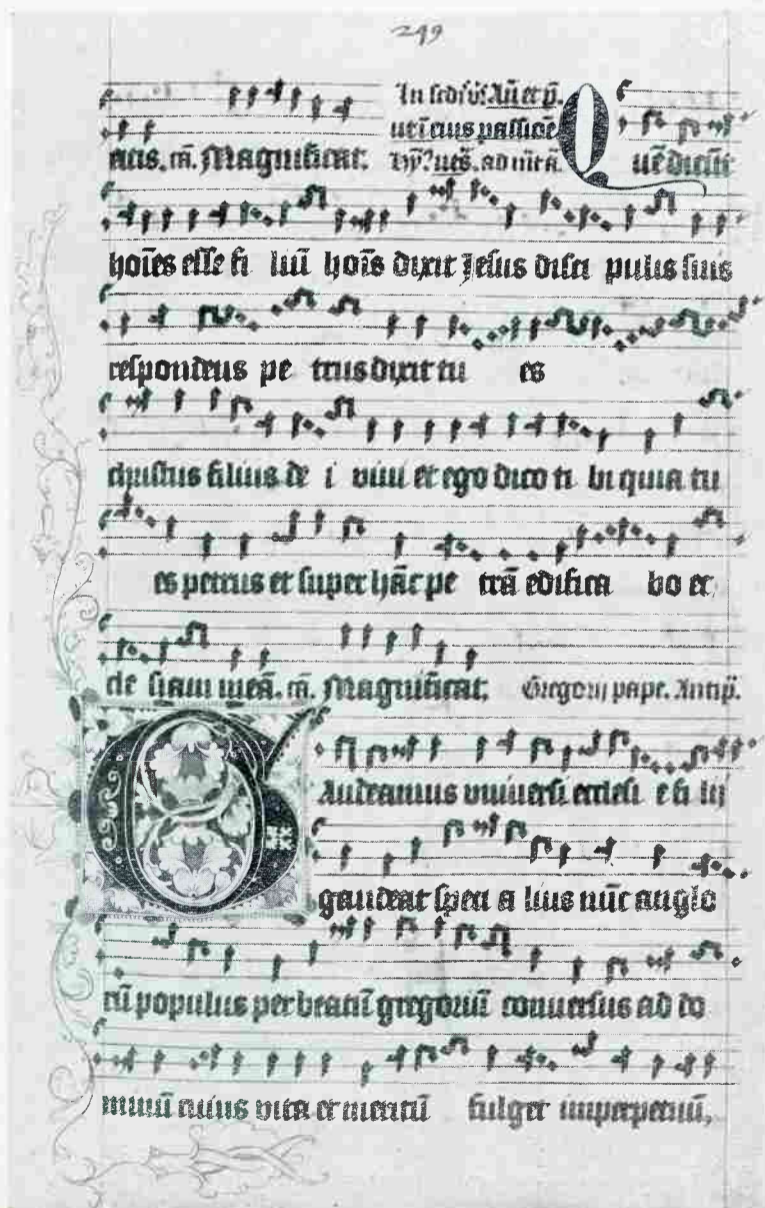 249
In scdis vs. Añ et p̄.
ut i eius passiōe
atis. m̄. Magnificat. ad mta. Quē dicūt
hoīes esse fi liū hoīs dixit Jesus disci pulis suis
respondens pe trus dixit tu es
christus filius de i vivi et ego dico ti bi quia tu
es petrus et super hāc pe trā edifica bo ec
cle siam meā. m̄. Magnificat. Gregorij pape. Antiph̄.
GAudeamus universi ecclesi e fi lij
gaudeat speci a lius nūc anglo
rū populus per beatū gregoriū conversus ad do
minū cuius vita et meritū fulget imperpetuū,